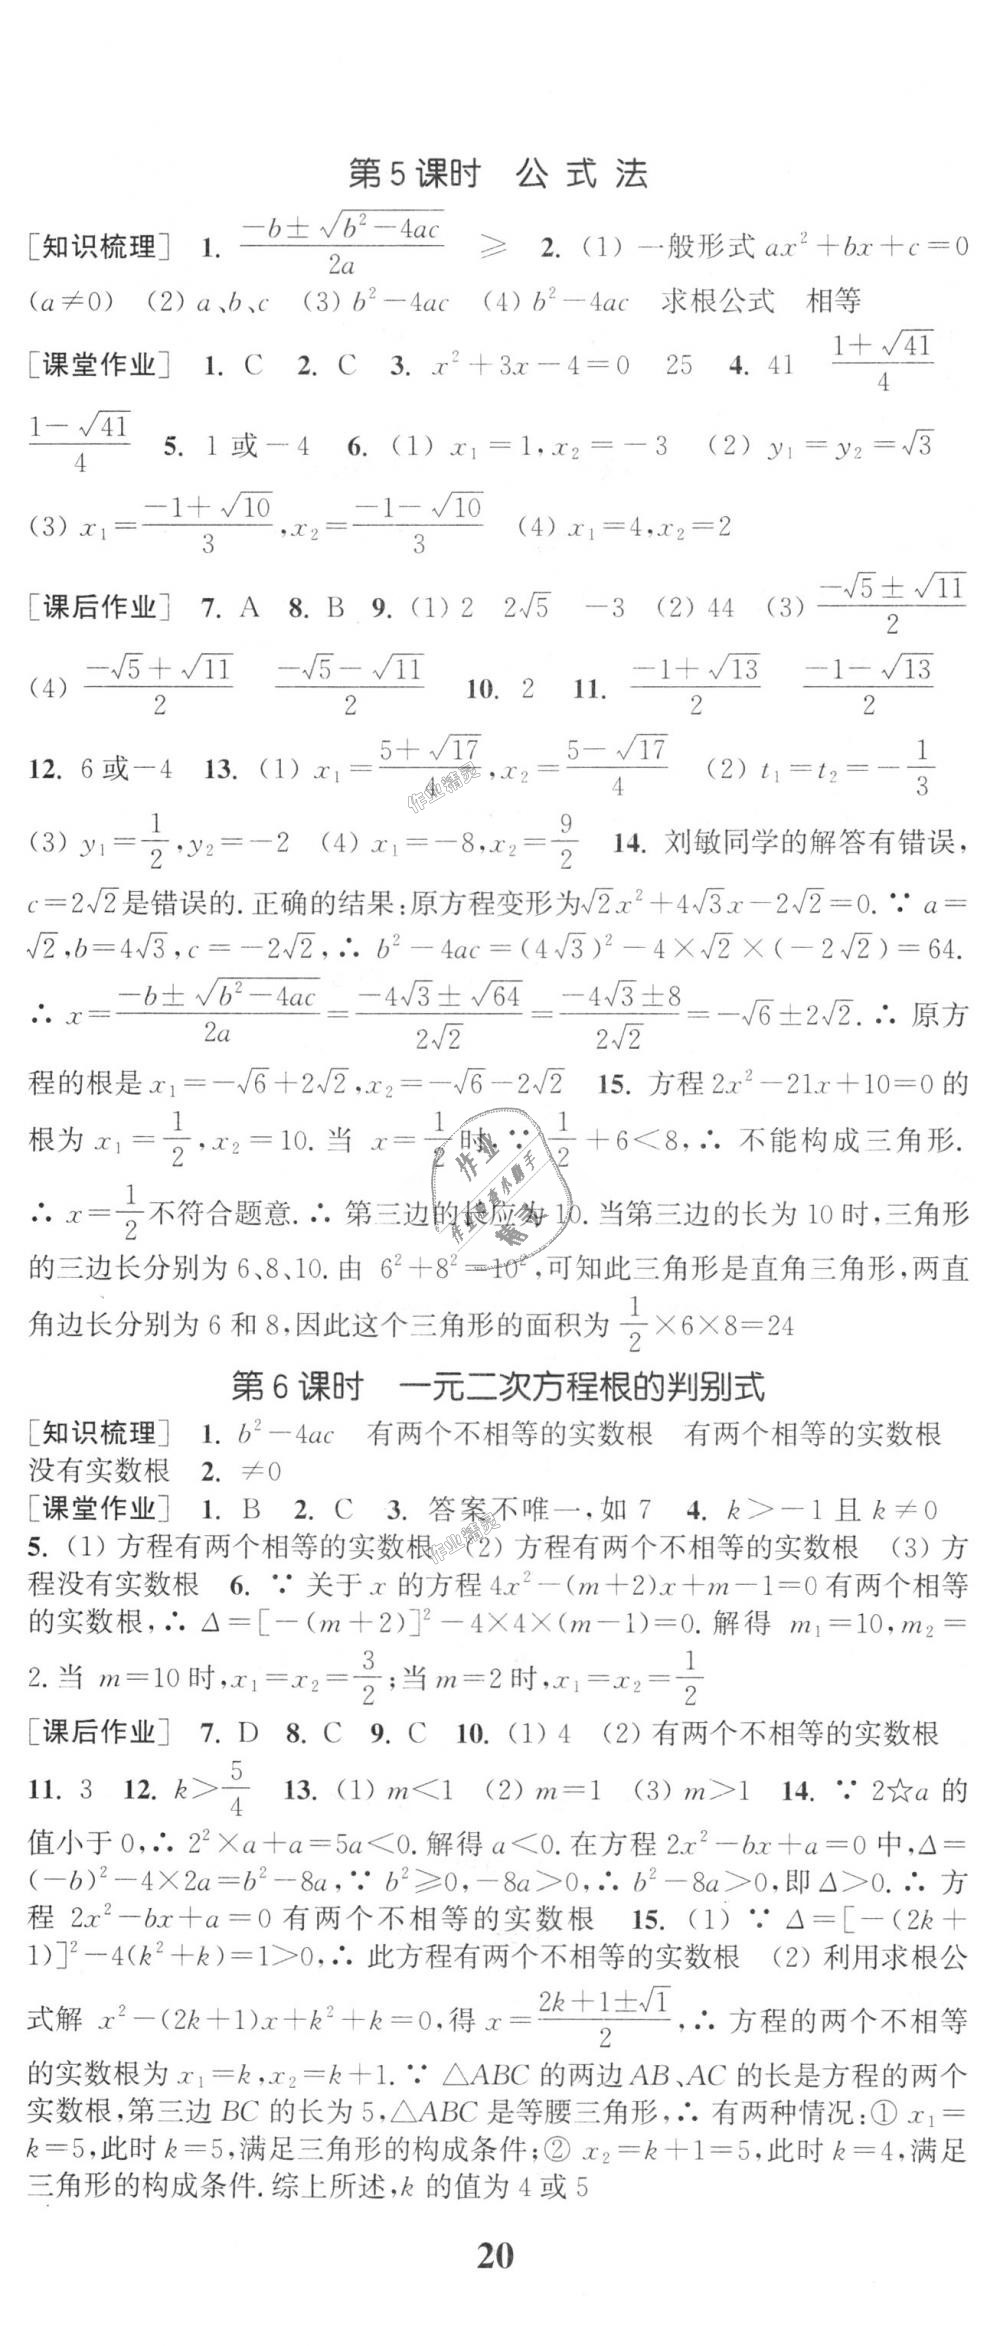 第5课时 公式法
[知识梳理] 1. \frac{-b±\sqrt{b²-4ac}}{2a} ≥ 2. (1) 一般形式 ax²+bx+c=0
(a≠0) (2) a、b、c (3) b²-4ac (4) b²-4ac 求根公式 相等
[课堂作业] 1. C 2. C 3. x²+3x-4=0 25 4. 41 \frac{1+\sqrt{41}}{4}
\frac{1-\sqrt{41}}{4} 5. 1或-4 6. (1) x₁=1,x₂=-3 (2) y₁=y₂=√3
(3) x₁=\frac{-1+\sqrt{10}}{3},x₂=\frac{-1-\sqrt{10}}{3} (4) x₁=4,x₂=2
[课后作业] 7. A 8. B 9. (1) 2 2√5 -3 (2) 44 (3) \frac{-\sqrt{5}±\sqrt{11}}{2}
(4) \frac{-\sqrt{5}+\sqrt{11}}{2} \frac{-\sqrt{5}-\sqrt{11}}{2} 10. 2 11. \frac{-1+\sqrt{13}}{2} \frac{-1-\sqrt{13}}{2}
12. 6或-4 13. (1) x₁=\frac{5+\sqrt{17}}{4},x₂=\frac{5-\sqrt{17}}{4} (2) t₁=t₂=-\frac{1}{3}
(3) y₁=\frac{1}{2},y₂=-2 (4) x₁=-8,x₂=\frac{9}{2} 14. 刘敏同学的解答有错误,
c=2√2是错误的.正确的结果:原方程变形为√2x²+4√3x-2√2=0.∵ a=
√2,b=4√3,c=-2√2,∴ b²-4ac=(4√3)²-4×√2×(-2√2)=64.
∴ x=\frac{-b±\sqrt{b²-4ac}}{2a}=\frac{-4\sqrt{3}±\sqrt{64}}{2\sqrt{2}}=\frac{-4\sqrt{3}±8}{2\sqrt{2}}=-√6±2√2.∴ 原方
程的根是x₁=-√6+2√2,x₂=-√6-2√2 15. 方程2x²-21x+10=0的
根为 x₁=\frac{1}{2},x₂=10.当 x=\frac{1}{2}时,∵ \frac{1}{2}+6<8,∴ 不能构成三角形.
∴ x=\frac{1}{2}不符合题意.∴ 第三边的长应为10.当第三边的长为10时,三角形
的三边长分别为6、8、10.由 6²+8²=10²,可知此三角形是直角三角形,两直
角边长分别为6和8,因此这个三角形的面积为\frac{1}{2}×6×8=24
第6课时 一元二次方程根的判别式
[知识梳理] 1. b²-4ac 有两个不相等的实数根 有两个相等的实数根
没有实数根 2. ≠0
[课堂作业] 1. B 2. C 3. 答案不唯一,如7 4. k>-1且k≠0
5. (1) 方程有两个相等的实数根 (2) 方程有两个不相等的实数根 (3) 方
程没有实数根 6. ∵ 关于x的方程4x²-(m+2)x+m-1=0有两个相等
的实数根,∴ Δ=[-(m+2)]²-4×4×(m-1)=0.解得 m₁=10,m₂=
2.当 m=10时,x₁=x₂=\frac{3}{2};当m=2时,x₁=x₂=\frac{1}{2}
[课后作业] 7. D 8. C 9. C 10. (1) 4 (2) 有两个不相等的实数根
11. 3 12. k>\frac{5}{4} 13. (1) m<1 (2) m=1 (3) m>1 14. ∵ 2☆a的
值小于0,∴ 2²×a+a=5a<0.解得a<0.在方程2x²-bx+a=0中,Δ=
(-b)²-4×2a=b²-8a,∵ b²≥0,-8a>0,∴ b²-8a>0,即Δ>0.∴ 方
程 2x²-bx+a=0有两个不相等的实数根 15. (1) ∵ Δ=[-(2k+
1)]²-4(k²+k)=1>0,∴ 此方程有两个不相等的实数根 (2) 利用求根公
式解 x²-(2k+1)x+k²+k=0,得x=\frac{2k+1±\sqrt{1}}{2},∴ 方程的两个不相等
的实数根为x₁=k,x₂=k+1.∵ △ABC的两边AB、AC的长是方程的两个
实数根,第三边BC的长为5,△ABC是等腰三角形,∴ 有两种情况:① x₁=
k=5,此时k=5,满足三角形的构成条件;② x₂=k+1=5,此时k=4,满足
三角形的构成条件.综上所述,k的值为4或5
20
作业精灵
作业精灵